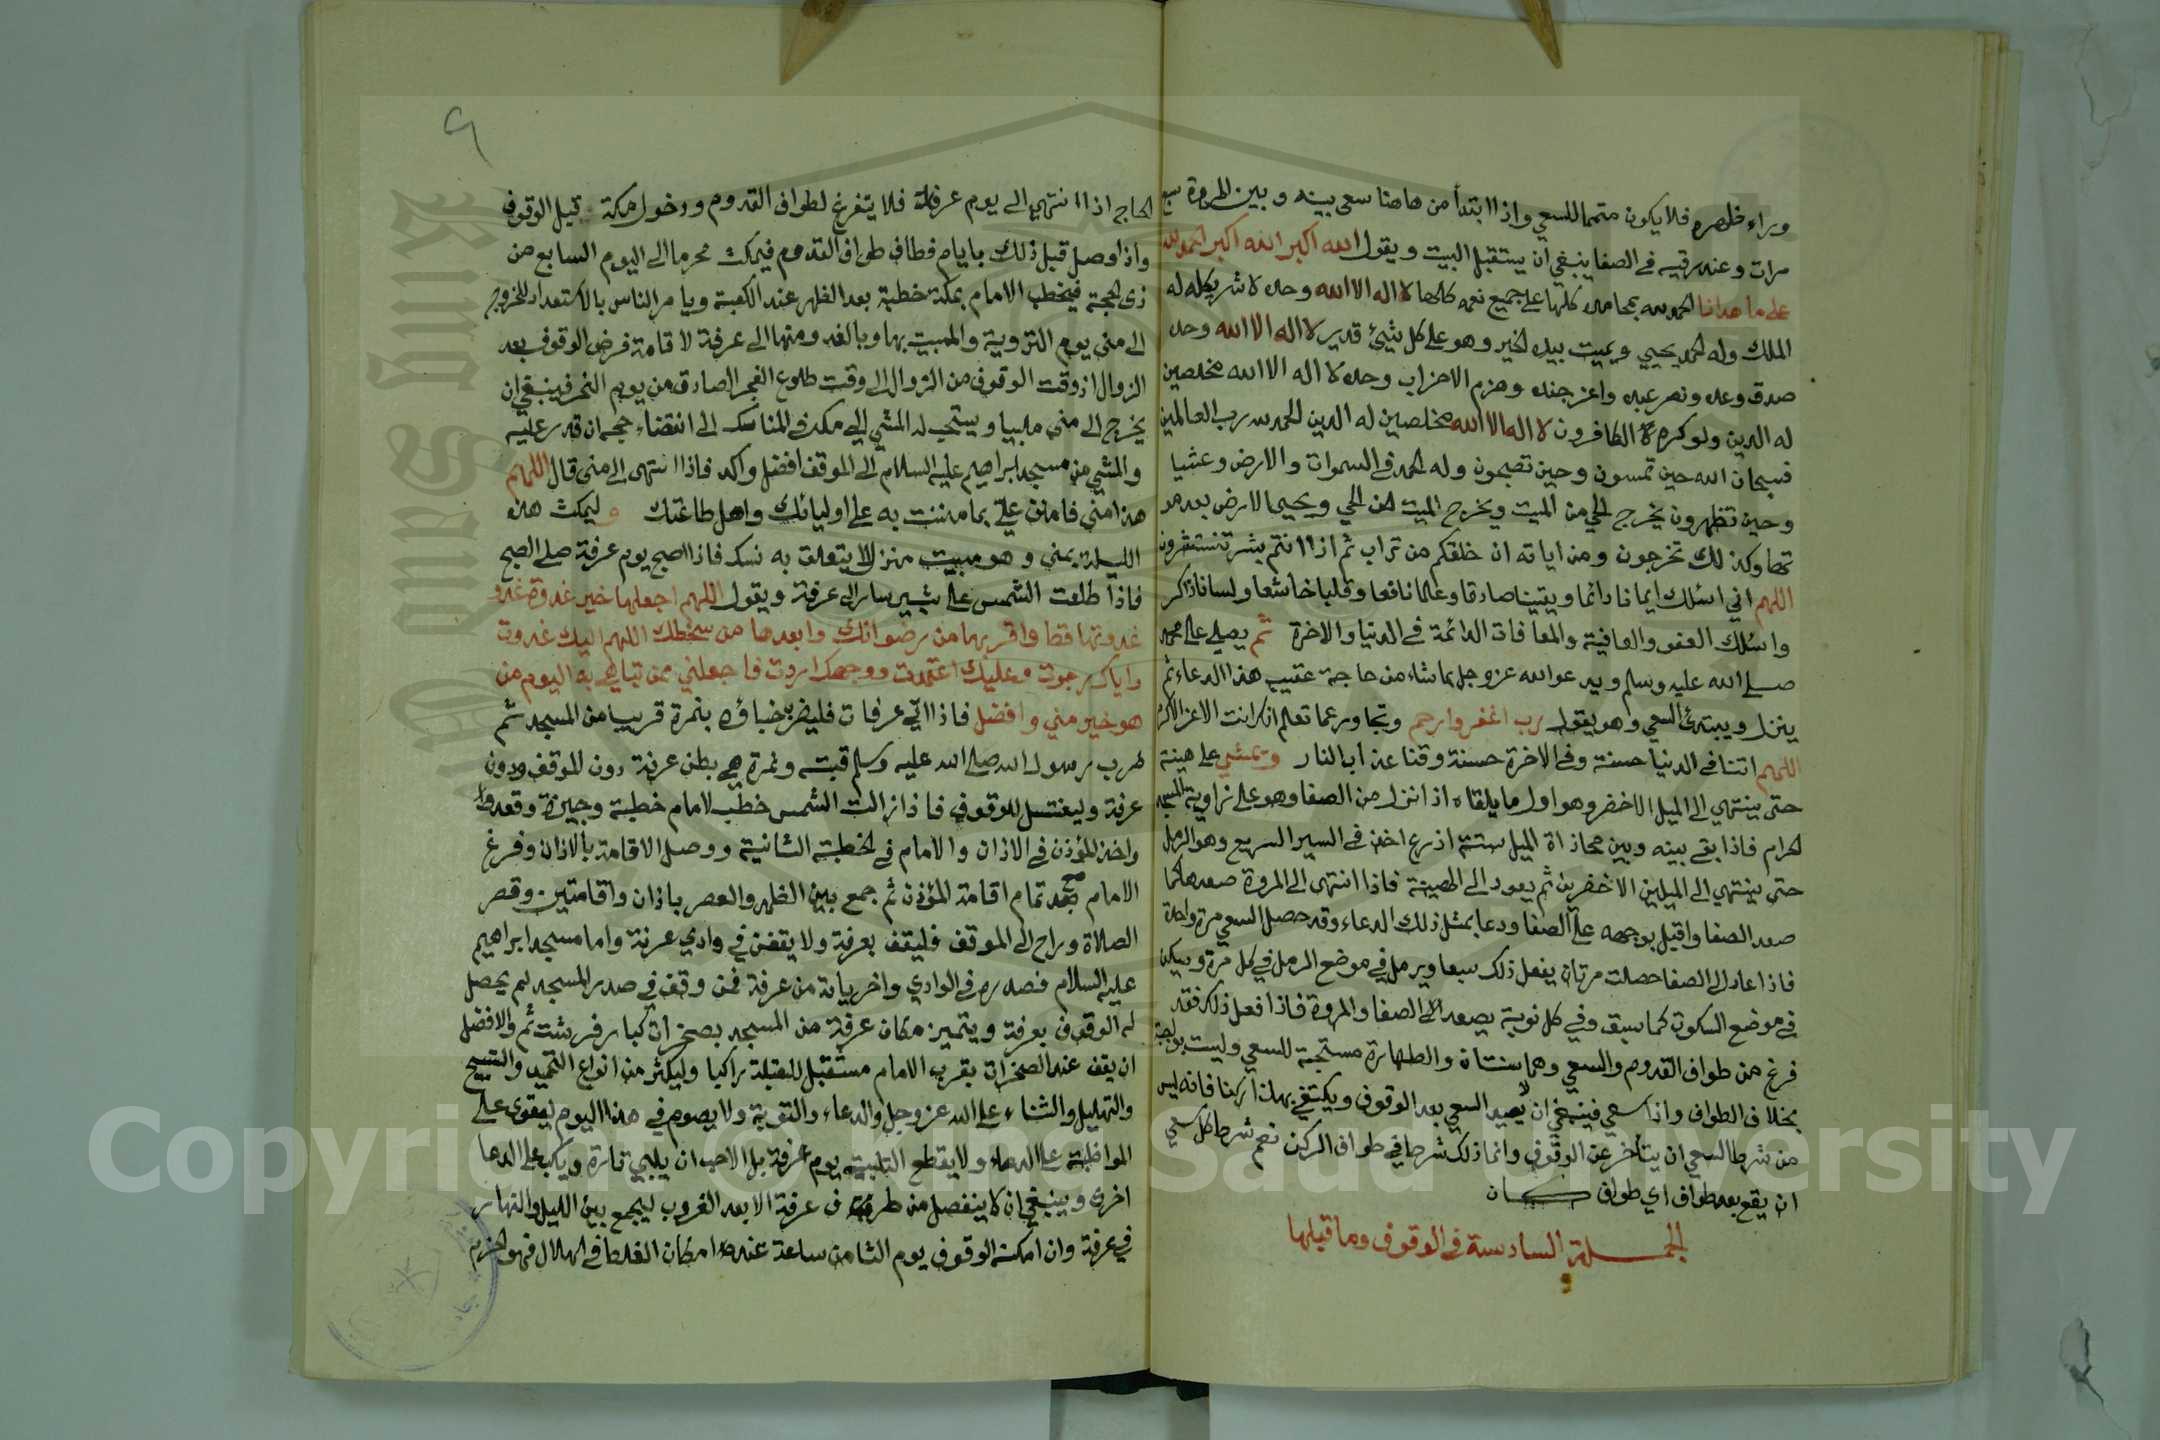 وراء ظهره فلا يكون متمما للسعي واذا ابتدأ من هاهنا سعى بينه وبين المروة سبع
مرات وعند رقيه في الصفا ينبغي ان يستقبل البيت ويقول الله اكبر الله اكبر الحمد لله
على ما هدانا الحمد لله بمحامده كلها على جميع نعمه كلها لا اله الا الله وحده لا شريك له له
الملك وله الحمد يحيي ويميت بيده الخير وهو على كل شيئ قدير لا اله الا الله وحده
صدق وعده ونصر عبده واعز جنده وهزم الاحزاب وحده لا اله الا الله مخلصين
له الدين ولو كره الكافرون لا اله الا الله مخلصين له الدين الحمد لله رب العالمين
فسبحان الله حين تمسون وحين تصبحون وله الحمد في السموات والارض وعشيا
وحين تظهرون يخرج الحي من الميت ويخرج الميت من الحي ويحيى الارض بعد مو
تها وكذلك تخرجون ومن اياته ان خلقكم من تراب ثم اذا انتم بشر تنتشرون
اللهم اني اسئلك ايمانا دائما ويقينا صادقا وعلما نافعا وقلبا خاشعا ولسانا ذاكر
واسئلك العفو والعافية والمعافات الدائمة في الدنيا والاخرة ثم يصلي على محمد
صلى الله عليه وسلم ويدعو الله عز وجل بماشاء من حاجة عقيب هذا الدعاء ثم
ينزل ويبتدئ السعي وهو يقول رب اغفر وارحم وتجاوز عما تعلم انك انت الاعز الاكرم
اللهم اتنا في الدنيا حسنة وفي الاخرة حسنة وقنا عذاب النار ويمشي على هينة
حتى ينتهي الى الميل الاخضر وهو اول ما يلقاه اذا نزل من الصفا وهو على زاوية المسجد
الحرام فاذا بقي بينه وبين محاذاة الميل ستة اذرع اخذ في السير السريع وهو الرمل
حتى ينتهي الى الميلين الاخضرين ثم يعود الى الهينة فاذا انتهى الى المروة صعدها كما
صعد الصفا واقبل بوجهه على الصفا ودعا بمثل ذلك الدعاء وقد حصل السعي مرة واحدة
فاذا عاد الى الصفا حصلت مرتان يفعل ذلك سبعا ويرمل في موضع الرمل في كل مرة ويسكن
في موضع السكون كما سبق وفي كل نوبة يصعد الى الصفا والمروة فاذا فعل ذلك فقد
فرغ من طواف القدوم والسعي وهما سنتان والطهارة مستحبة للسعي وليست بواجبة
بخلاف الطواف واذا سعى فينبغي ان لا يعيد السعي بعد الوقوف ويكتفي بهذا ركنا فانه ليس
من شرط السعي ان يتأخر عن الوقوف وانما ذلك شرط في طواف الركن نعم شرط كل سعي
ان يقع بعد طواف اي طواف كان
الجملة السادسة في الوقوف وما قبلها
٩
الحاج اذا انتهى الى يوم عرفة فلا يتفرغ لطواف القدوم ودخول مكة قبل الوقوف
واذا وصل قبل ذلك بايام فطاف طواف القدوم فيمكث محرما الى اليوم السابع من
ذي الحجة فيخطب الامام بمكة خطبة بعد الظهر عند الكعبة ويامر الناس بالاستعداد للخروج
الى منى يوم التروية والمبيت بها وبالغد ومنها الى عرفة لاقامة فرض الوقوف بعد
الزوال اذ وقت الوقوف من الزوال الى وقت طلوع الفجر الصادق من يوم النحر فينبغي ان
يخرج الى منى ملبيا ويستحب له المشي الى مكة في المناسك الى انقضاء حجه ان قدر عليه
والمشي من مسجد ابراهيم عليه السلام الى الموقف افضل واكد فاذا انتهى الى منى قال اللهم
هذا منى فامنن علي بما مننت به على اوليائك واهل طاعتك وليمكث هذه
الليلة بمنى وهو مبيت منزل لا يتعلق به نسك فاذا اصبح يوم عرفة صلى الصبح
فاذا طلعت الشمس على ثبير سار الى عرفة ويقول اللهم اجعلها خير غدوة غدو
غدوتها قط واقربها من رضوانك وابعدها من سخطك اللهم اليك غدوت
واياك رجوت وعليك اعتمدت ووجهك اردت فاجعلني ممن تباهي به اليوم من
هو خير مني وافضل فاذا اتى عرفات فليضرب خباؤه بنمرة قريبا من المسجد ثم
ضرب رسول الله صلى الله عليه وسلم قبته ونمرة هي بطن عرنة دون الموقف ودون
عرفة وليغتسل للوقوف فاذا زالت الشمس خطب الامام خطبة وجيزة وقعد
واخذ المؤذن في الاذان والامام في الخطبة الثانية ووصل الاقامة بالاذان وفرغ
الامام بعد تمام اقامة المؤذن ثم جمع بين الظهر والعصر باذان واقامتين وقصر
الصلاة وراح الى الموقف فليقف بعرفة ولا يقفن في وادي عرنة واما مسجد ابراهيم
عليه السلام فصدره في الوادي واخرياته من عرفة فمن وقف في صدر المسجد لم يحصل
له الوقوف بعرفة ويتميز مكان عرفة من المسجد بصخرات كبار فرشت ثم والافضل
ان يقف عند الصخرات بقرب الامام مستقبل للقبلة راكبا وليكثر من انواع التحميد والتسبيح
والتهليل والثناء على الله عز وجل والدعاء والتوبة ولا يصوم في هذا اليوم ليقوى على
المواظبة على الدعاء ولا يقطع التلبية يوم عرفة بل الاحب ان يلبي تارة ويكب على الدعا
اخرى وينبغي ان لا ينفصل من طرف عرفة الا بعد الغروب ليجمع بين الليل والنهار
في عرفة وان امكنه الوقوف يوم الثامن ساعة عند امكان الغلط في الهلال فهو الحزم
Copyright © King Saud University
King Saud